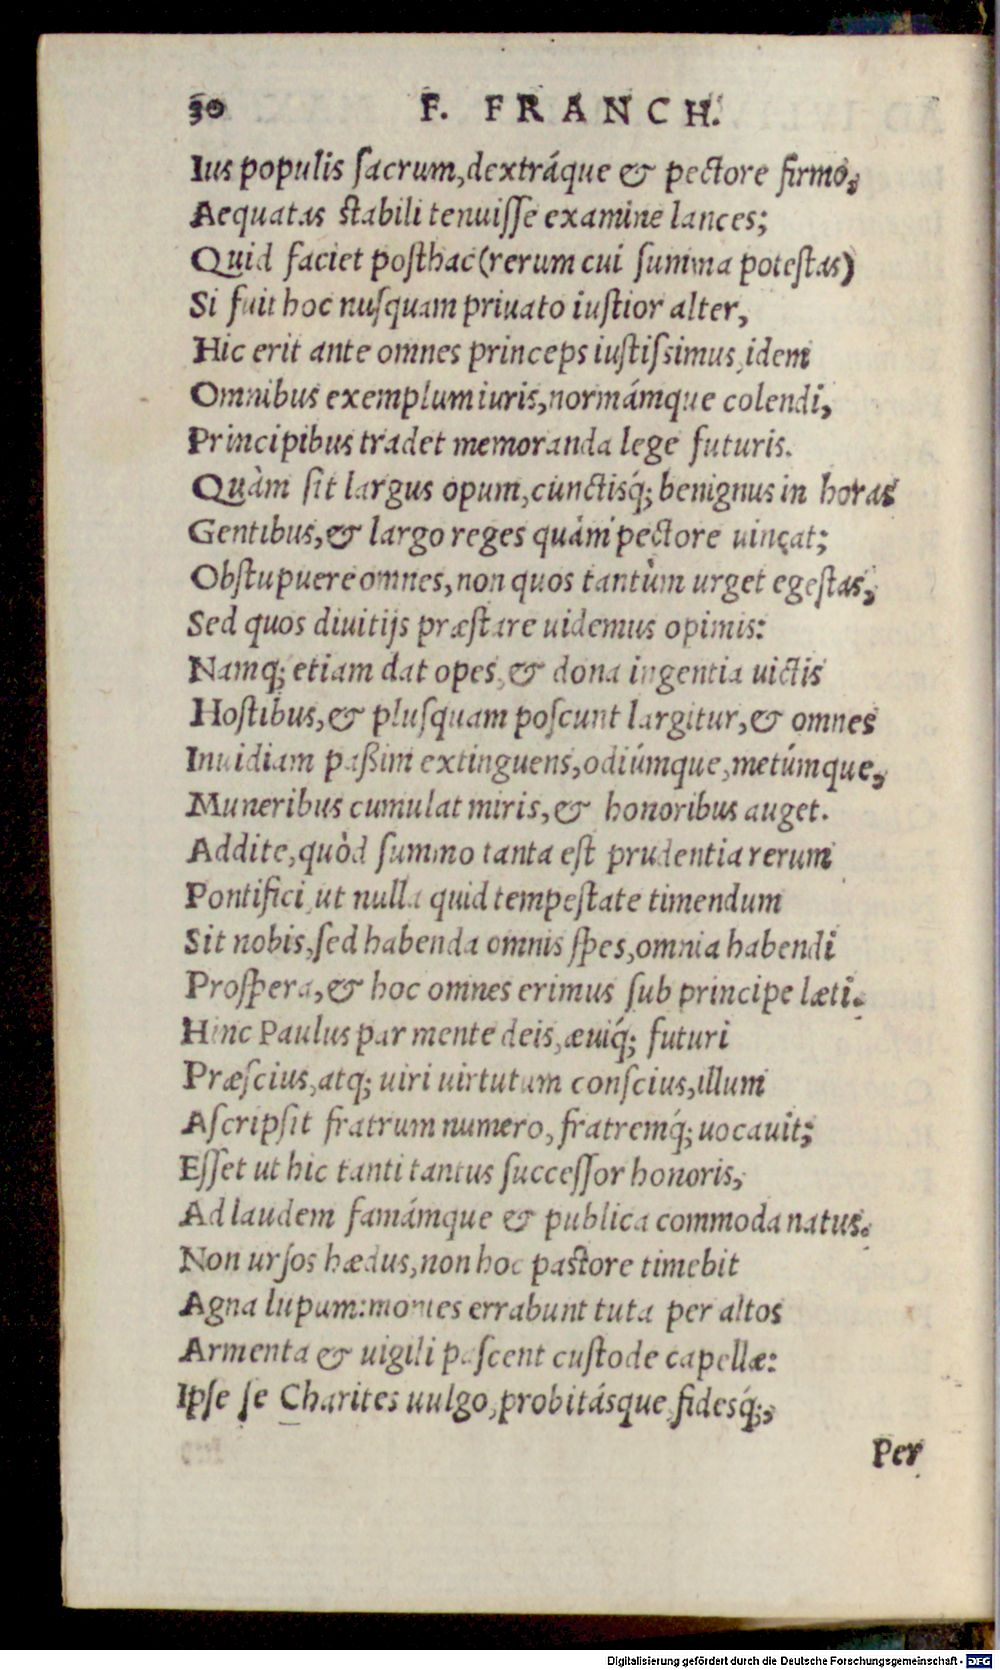 30 F. FRANCH.
Ius populis ſacrum, dextráque & pectore firmo,
Aequatas ſtabili tenuiſſe examine lances;
Quid faciet poſthac (rerum cui ſumma poteſtas)
Si fuit hoc nuſquam priuato iuſtior alter,
Hic erit ante omnes princeps iuſtiſsimus, idem
Omnibus exemplum iuris, normámque colendi,
Principibus tradet memoranda lege futuris.
Quàm ſit largus opum, cunctisq́; benignus in horas
Gentibus, & largo reges quàm pectore uincat;
Obſtupuere omnes, non quos tantùm urget egeſtas,
Sed quos diuitijs præſtare uidemus opimis:
Namq; etiam dat opes, & dona ingentia uictis
Hoſtibus, & pluſquam poſcunt largitur, & omnes
Inuidiam paßim extinguens, odiúmque, metúmque,
Muneribus cumulat miris, & honoribus auget.
Addite, quòd ſummo tanta eſt prudentia rerum
Pontifici, ut nulla quid tempeſtate timendum
Sit nobis, ſed habenda omnis ſpes, omnia habendi
Proſpera, & hoc omnes erimus ſub principe læti.
Hinc Paulus par mente deis, æuiq́; futuri
Præſcius, atq; uiri uirtutum conſcius, illum
Aſcripſit fratrum numero, fratremq́; uocauit;
Eſſet ut hic tanti tantus ſucceſſor honoris,
Ad laudem famámque & publica commoda natus.
Non urſos hædus, non hoc paſtore timebit
Agna lupum: montes errabunt tuta per altos
Armenta & uigili paſcent cuſtode capellæ:
Ipſe ſe Charites uulgo, probitásque, fidesq́;,
Per
Digitalisierung gefördert durch die Deutsche Forschungsgemeinschaft - DFG